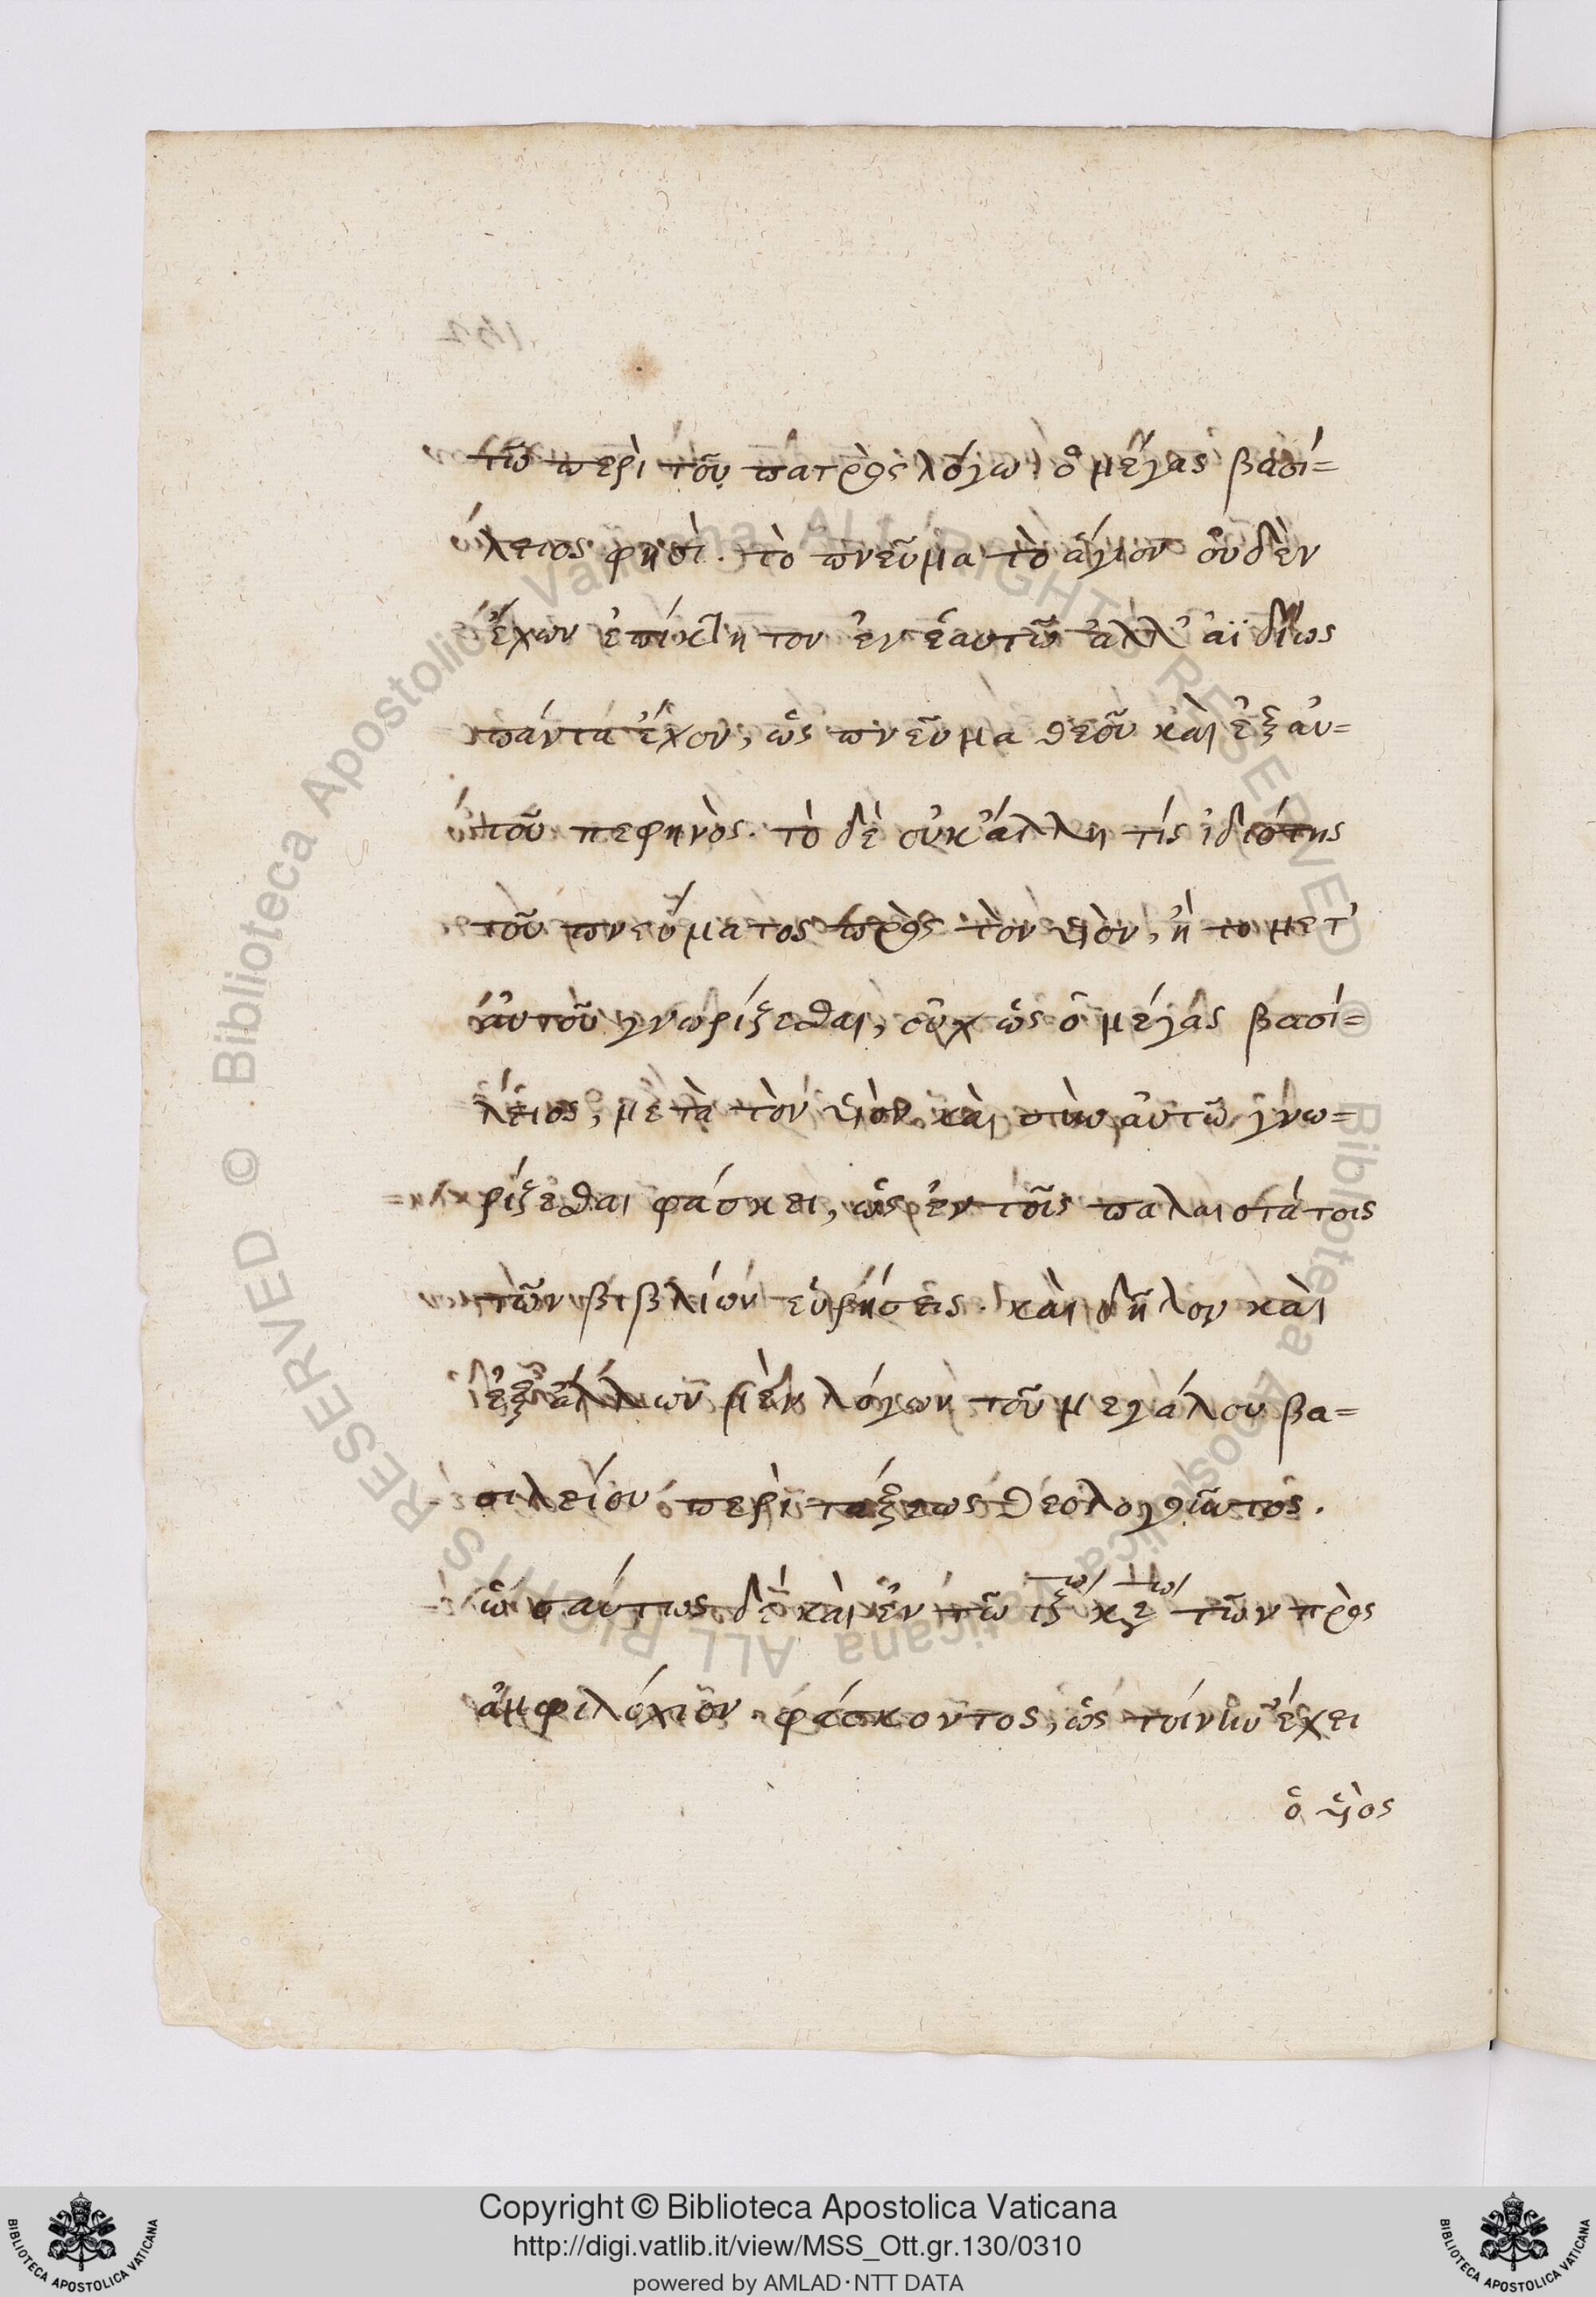 τῶ περὶ τοῦ πατρὸς λόγω ὁ μέγας βασί=
λειος φησὶ. τὸ πνεῦμα τὸ ἅγιον οὐδὲν
ἔχων ἐπίκτητον ἐν ἑαυτῶ ἀλλ' ἀϊδίως
πάντα ἔχον, ὡς πνεῦμα θεοῦ καὶ ἐξ αὐ=
τοῦ πεφηνὸς. τὸ δὲ οὐκ' ἄλλη τίς ἰδιότης
τοῦ πνεύματος πρὸς τὸν υἱὸν, ἢ το μετ'
αὐτοῦ γνωρίζεσθαι, οὐχ ὡς ὁ μέγας βασί=
λειος, μετὰ τὸν υἱὸν καὶ σὺν αὐτῶ γνω=
ρίζεσθαι φάσκει, ὡς ἐν τοῖς παλαιοτάτοις
τῶν βιβλίων εὑρήσεις. καὶ δῆλον καὶ
ἐξ ἄλλων μὲν λόγων τοῦ μεγάλου βα=
σιλείου περὶ τάξεως θεολογοῦντος.
ὡσαύτως δὲ καὶ ἐν τῶ ιζ κζ τῶν πρὸς
ἀμφιλόχιον φάσκοντος, ὡς τοίνυν ἔχει
ὁ υἱὸς
Copyright © Biblioteca Apostolica Vaticana
http://digi.vatlib.it/view/MSS_Ott.gr.130/0310
powered by AMLAD·NTT DATA
BIBLIOTECA APOSTOLICA VATICANA
BIBLIOTECA APOSTOLICA VATICANA